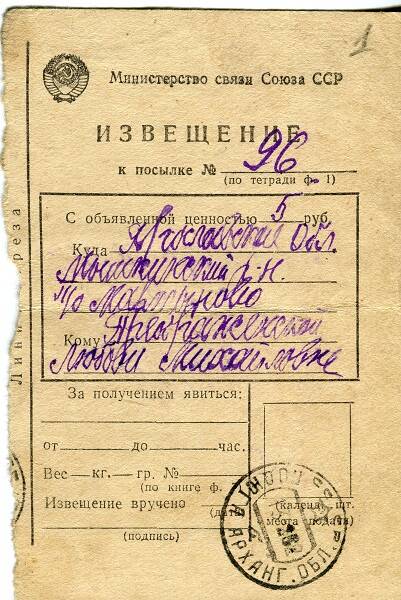 1
Министерство связи Союза ССР
ИЗВЕЩЕНИЕ
к посылке № 96
(по тетради ф. 1)
С объявленной ценностью 5 руб.
Куда Ярославская обл.
Мышкинский р-н.
п/о Мартыново
Кому Преображенской
Любови Михайловне
За получением явиться:
от до час.
Вес кг. гр. №
(по книге ф.
Извещение вручено
(дата)
(подпись)
(календ. шт.
места подачи)
Линия отреза
СССР
АРХАНГ. ОБЛ.